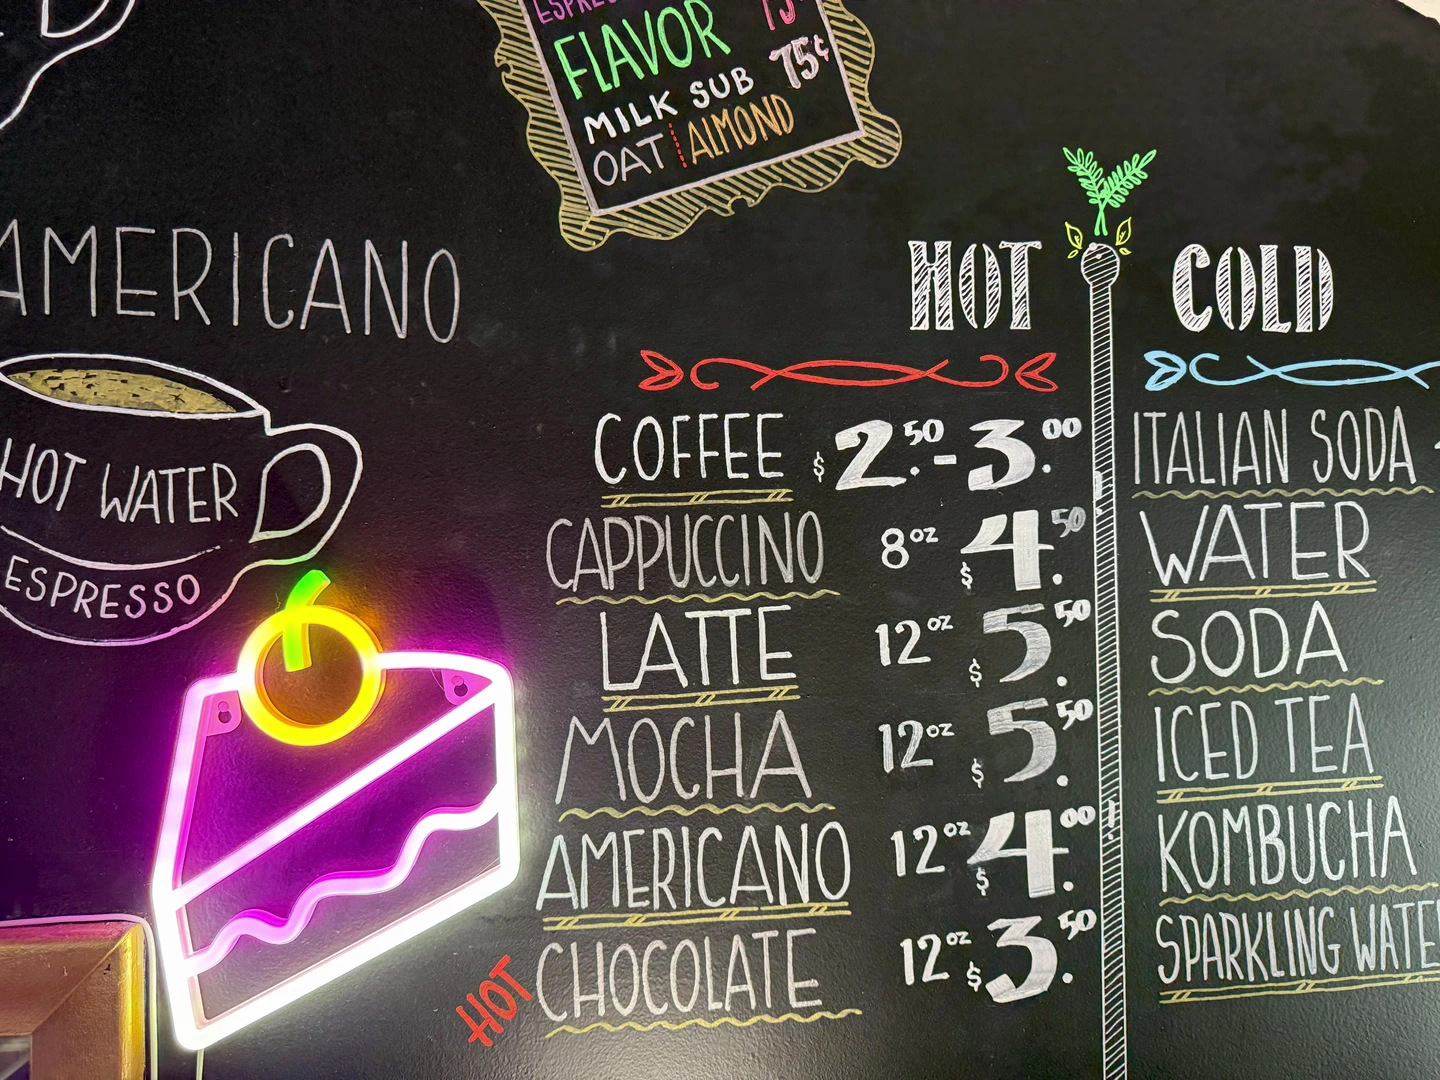 FLAVOR
MILK SUB 75¢
OAT | ALMOND
AMERICANO
HOT WATER
ESPRESSO
HOT
COFFEE $2.50-3.00
CAPPUCCINO 8oz $4.50
LATTE 12oz $5.50
MOCHA 12oz $5.50
AMERICANO 12oz $4.00
HOT CHOCOLATE 12oz $3.50
COLD
ITALIAN SODA
WATER
SODA
ICED TEA
KOMBUCHA
SPARKLING